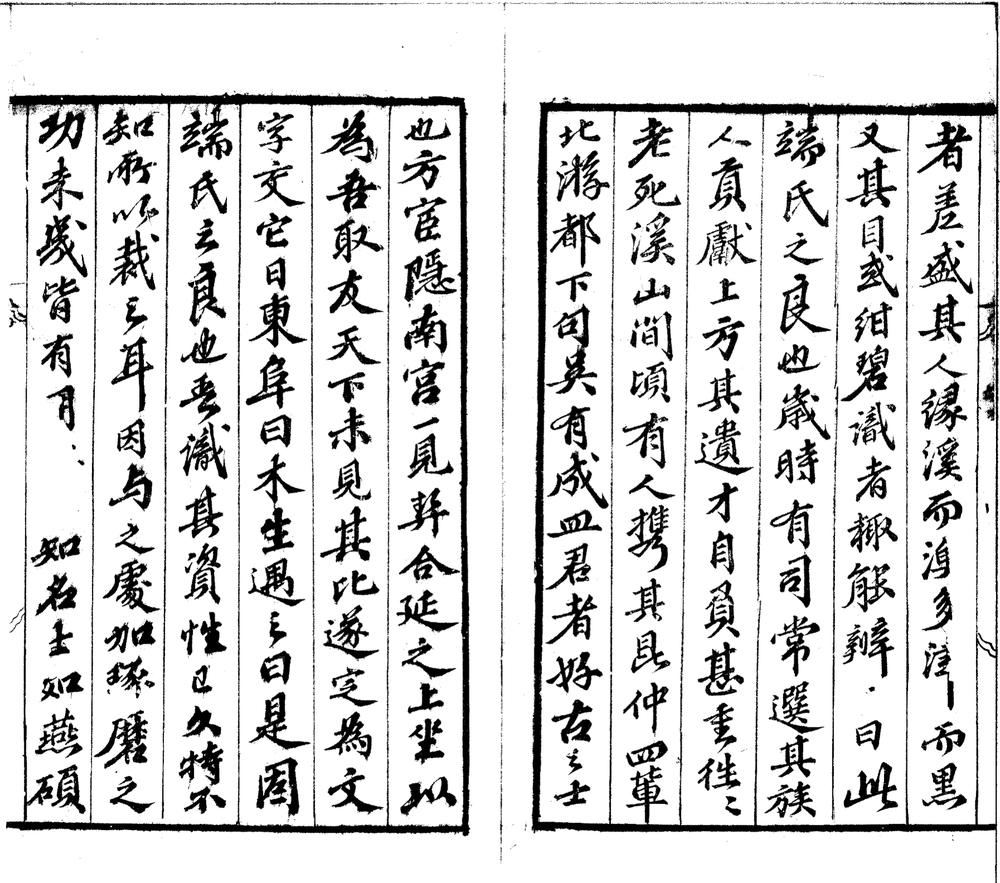 者差盛其人緣溪而漁多津而黑
又其目或紺碧識者輙能辨曰此
端氏之良也歲時有司常選其族
人貢獻上方其遺才自負甚重徃〻
老死溪山間頃有人携其昆仲四輩
北游都下句吳有成皿君者好古之士
也方宦隱南宮一見契合延之上坐以
為吾取友天下未見其比遂定為文
字交它日東阜曰木生遇之曰是固
端氏之良也吾識其資性已久特不
知所以裁之耳因与之處加琢磨之
功未幾皆有用
知名士如燕碩